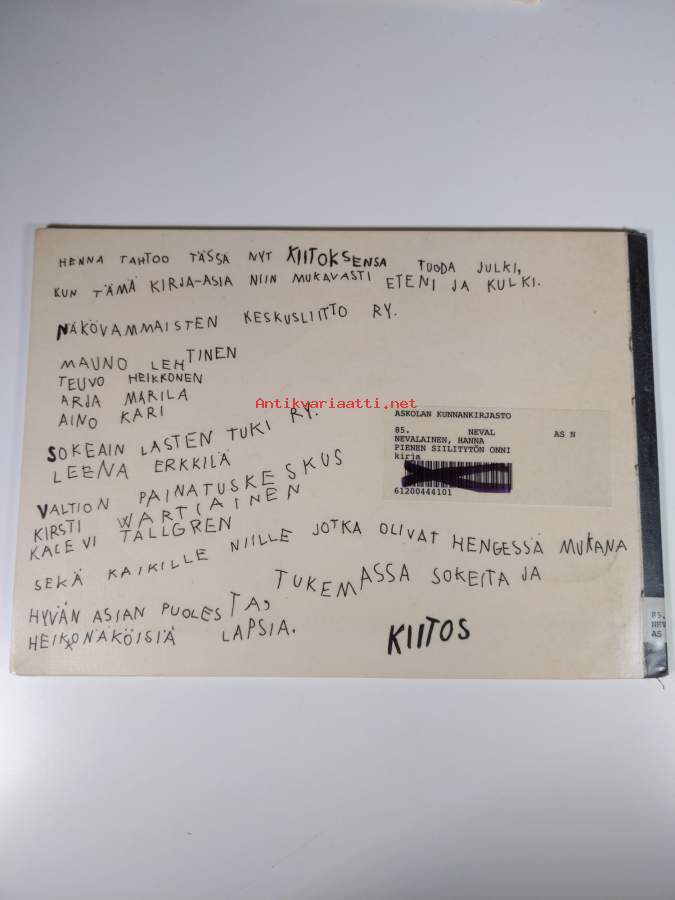 HENNA TAHTOO TÄSSÄ NYT KIITOKSENSA TUODA JULKI,
KUN TÄMÄ KIRJA-ASIA NIIN MUKAVASTI ETENI JA KULKI.
NÄKÖVAMMAISTEN KESKUSLIITTO RY.
MAUNO LEHTINEN
TEUVO HEIKKONEN
ARJA MARILA
AINO KARI
Antikvariaatti.net
SOKEAIN LASTEN TUKI RY.
LEENA ERKKILÄ
VALTION PAINATUSKESKUS
KIRSTI WARTIAINEN
KALEVI TALLGREN
SEKÄ KAIKILLE NIILLE JOTKA OLIVAT HENGESSÄ MUKANA
TUKEMASSA SOKEITA JA
HYVÄN ASIAN PUOLESTA,
HEIKKONÄKÖISIÄ LAPSIA.
KIITOS
ASKOLAN KUNNANKIRJASTO
85. NEVAL AS N
NEVALAINEN, HANNA
PIENEN SIILITYTÖN ONNI
kirja
61200444101
85.
NEV
AS